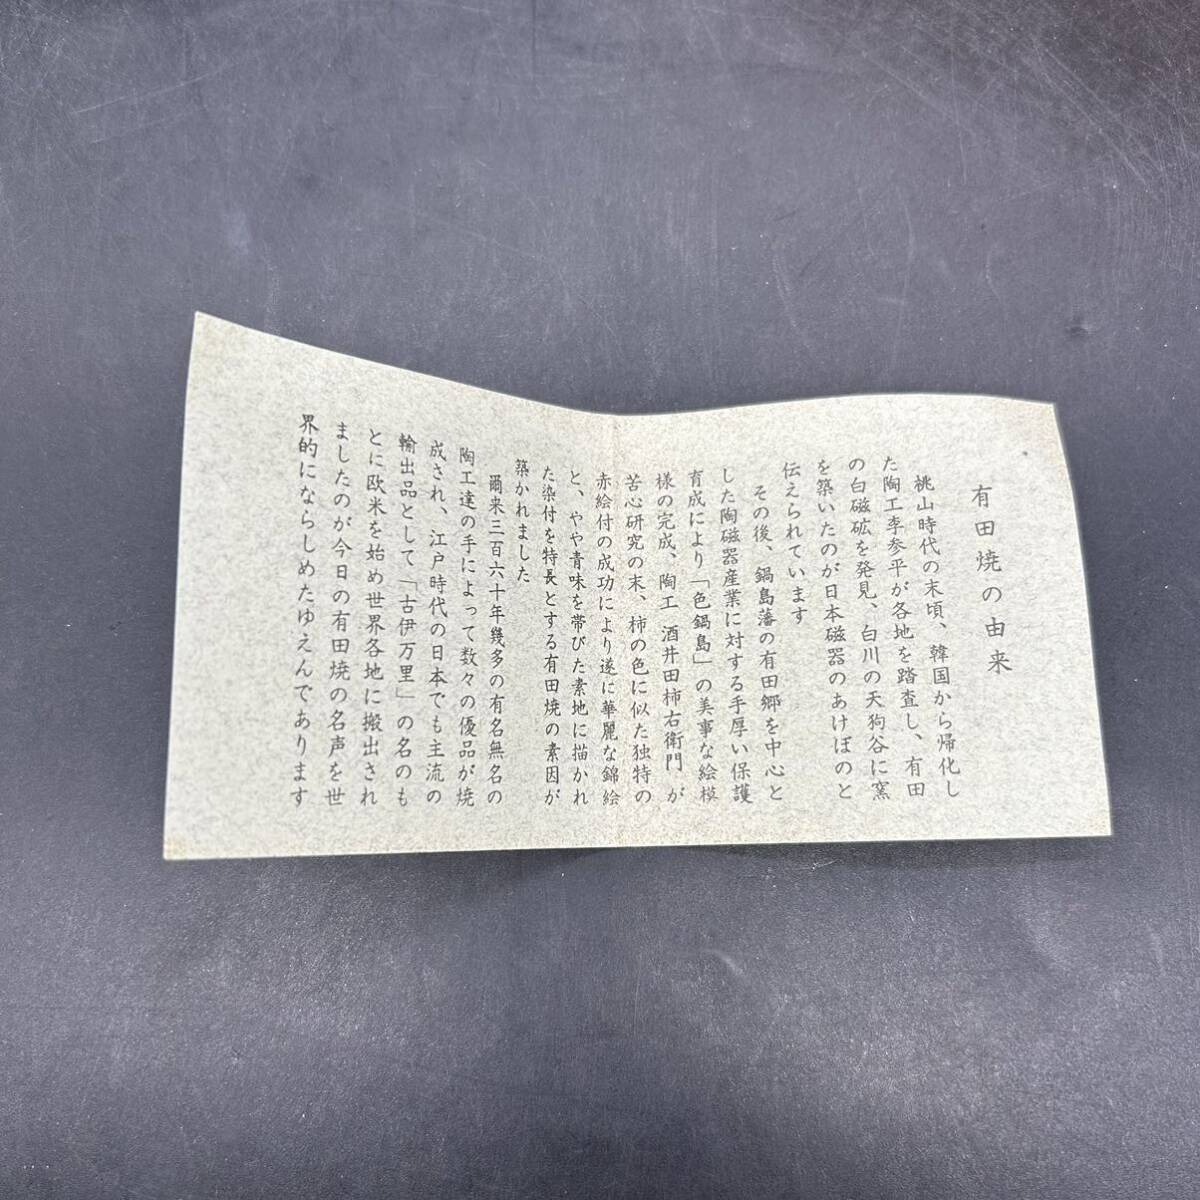 有田焼の由来
桃山時代の末頃、韓国から帰化し
た陶工李参平が各地を踏査し、有田
の白磁砿を発見、白川の天狗谷に窯
を築いたのが日本磁器のあけぼのと
伝えられています
その後、鍋島藩の有田郷を中心と
した陶磁器産業に対する手厚い保護
育成により「色鍋島」の美事な絵模
様の完成、陶工 酒井田柿右衛門 が
苦心研究の末、柿の色に似た独特の
赤絵付の成功により遂に華麗な錦絵
と、やや青味を帯びた素地に描かれ
た染付を特長とする有田焼の素因が
築かれました
爾来三百六十年幾多の有名無名の
陶工達の手によって数々の優品が焼
成され、江戸時代の日本でも主流の
輸出品として「古伊万里」の名のも
とに欧米を始め世界各地に搬出され
ましたのが今日の有田焼の名声を世
界的にならしめたゆえんであります